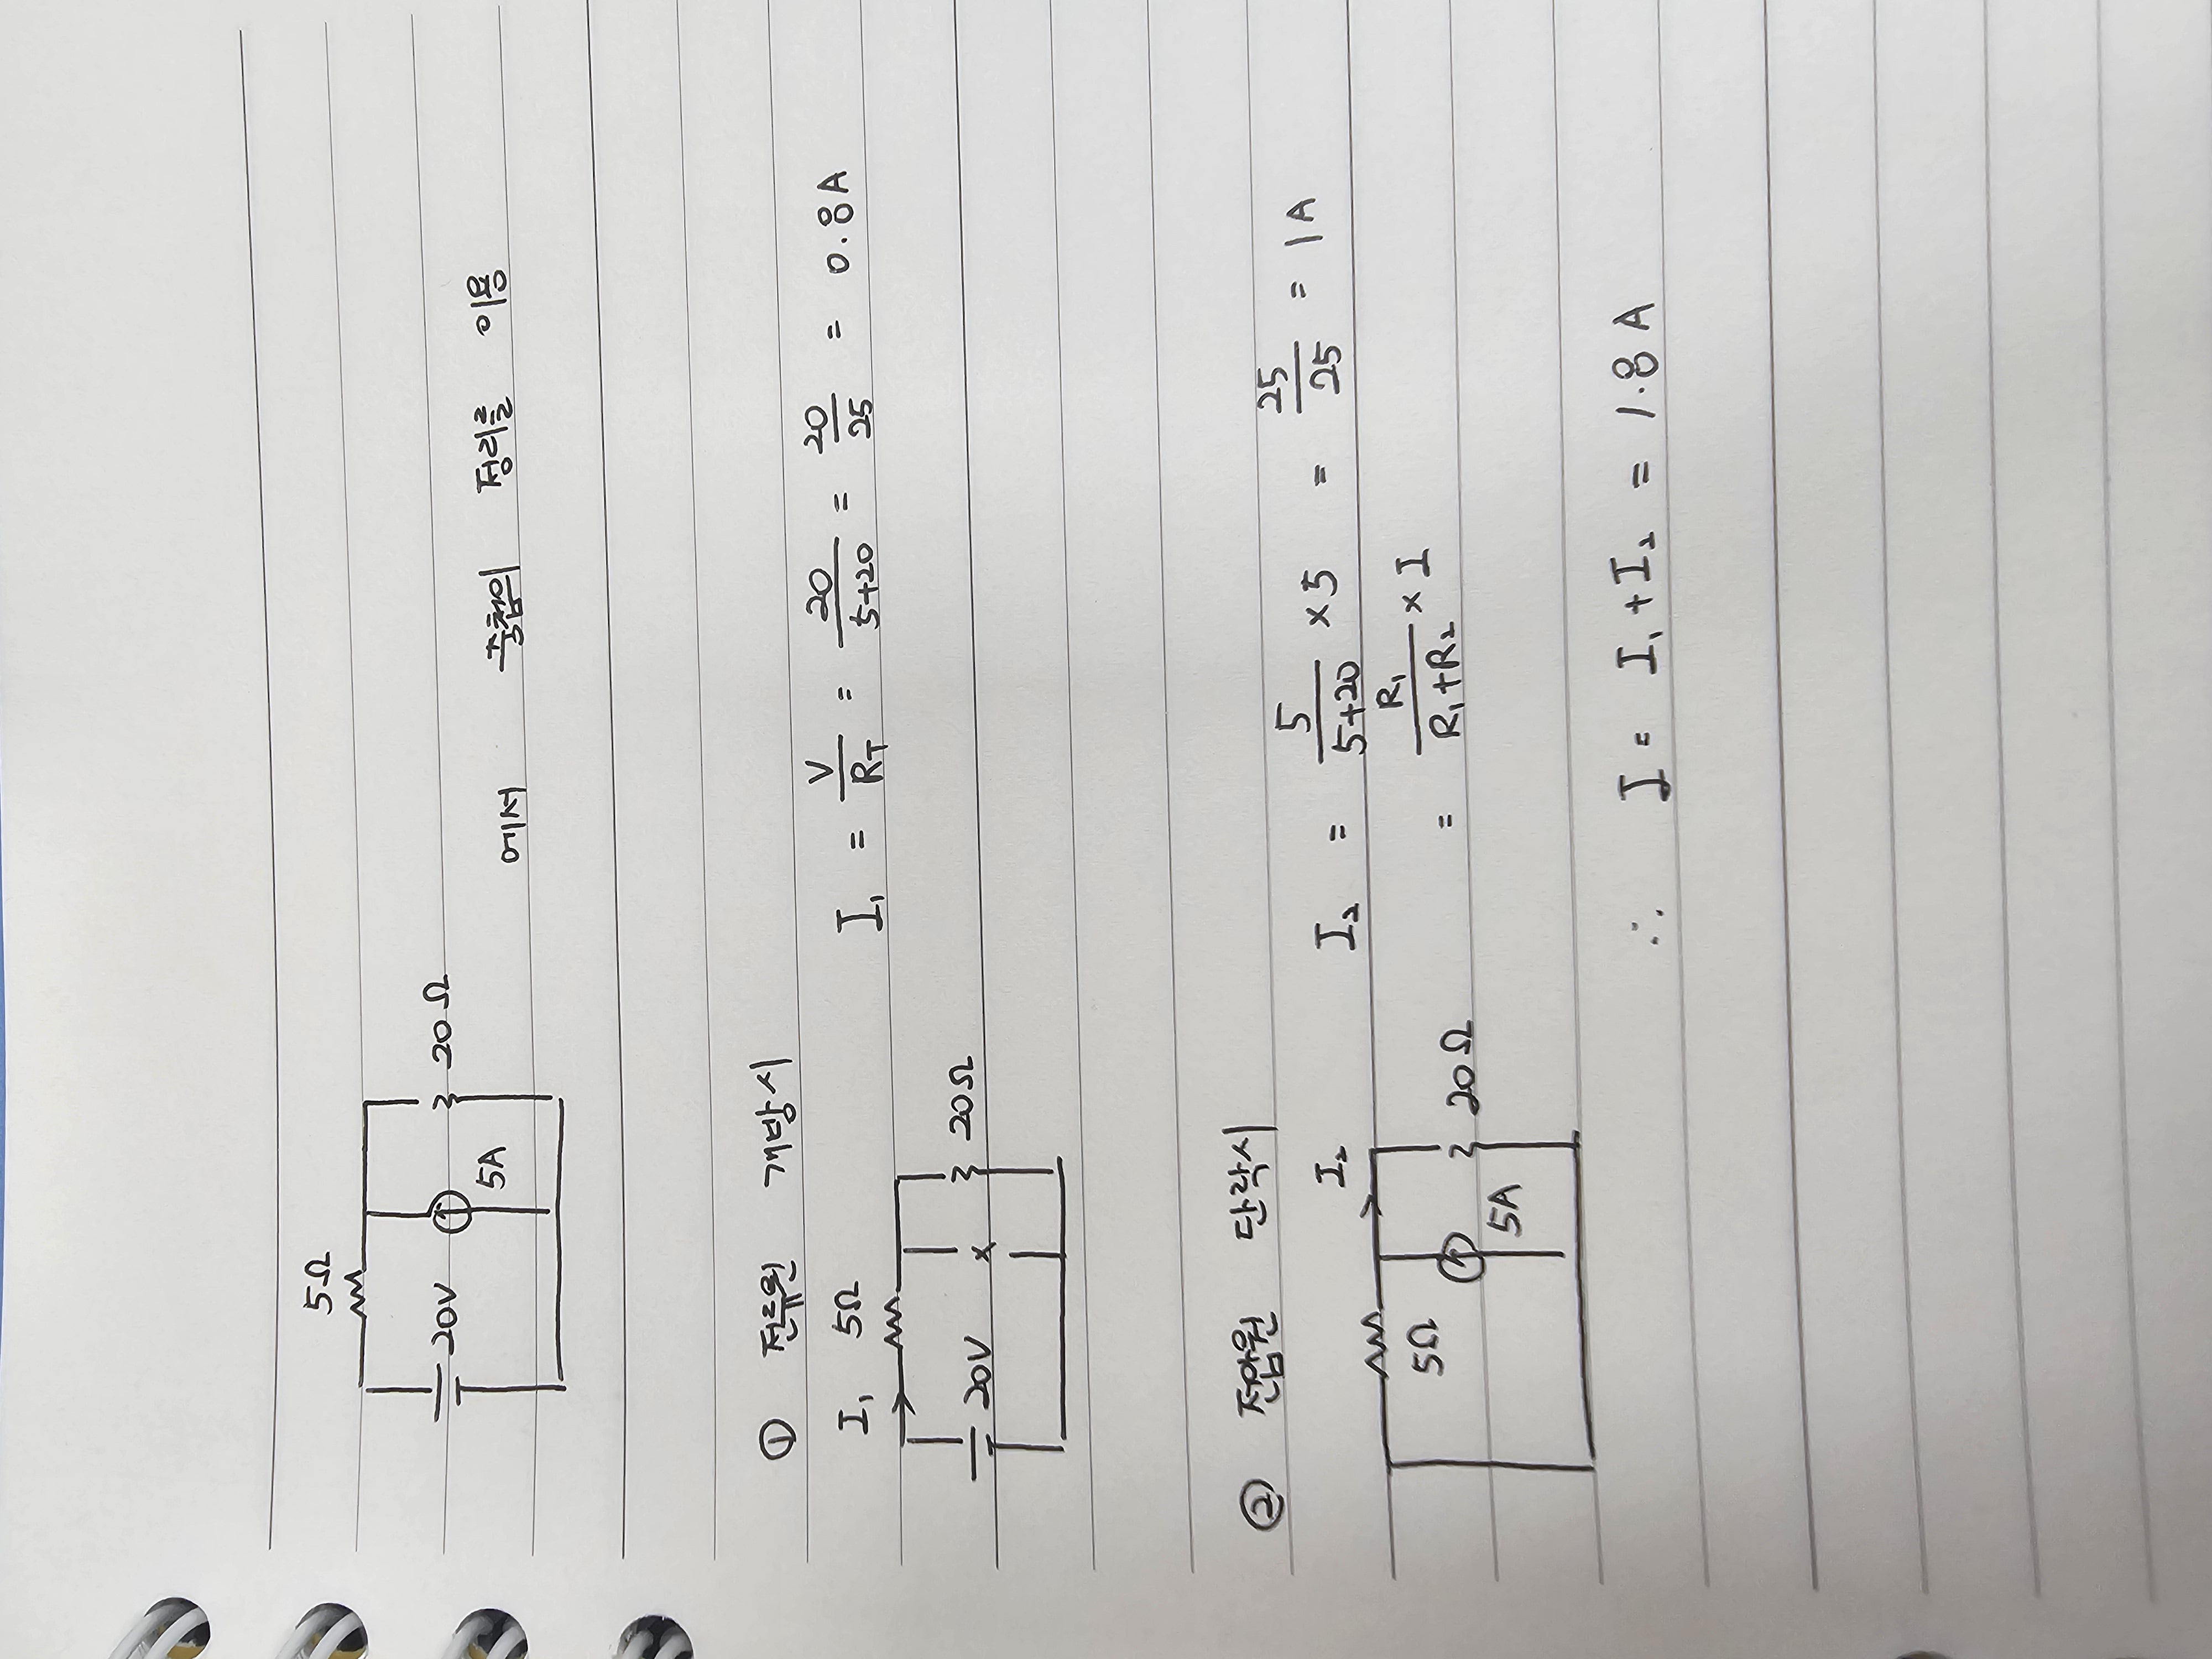 5Ω
20V 5A 20Ω
에서 중첩의 정리를 이용
① 전류원 개방시
I₁ 5Ω
20V × 20Ω
I₁ = V/R_T = 20/(5+20) = 20/25 = 0.8A
② 전압원 단락시
I₂
5Ω 5A 20Ω
I₂ = 5/(5+20) × 5 = 25/25 = 1A
= R₁/(R₁+R₂) × I
∴ I = I₁ + I₂ = 1.8A